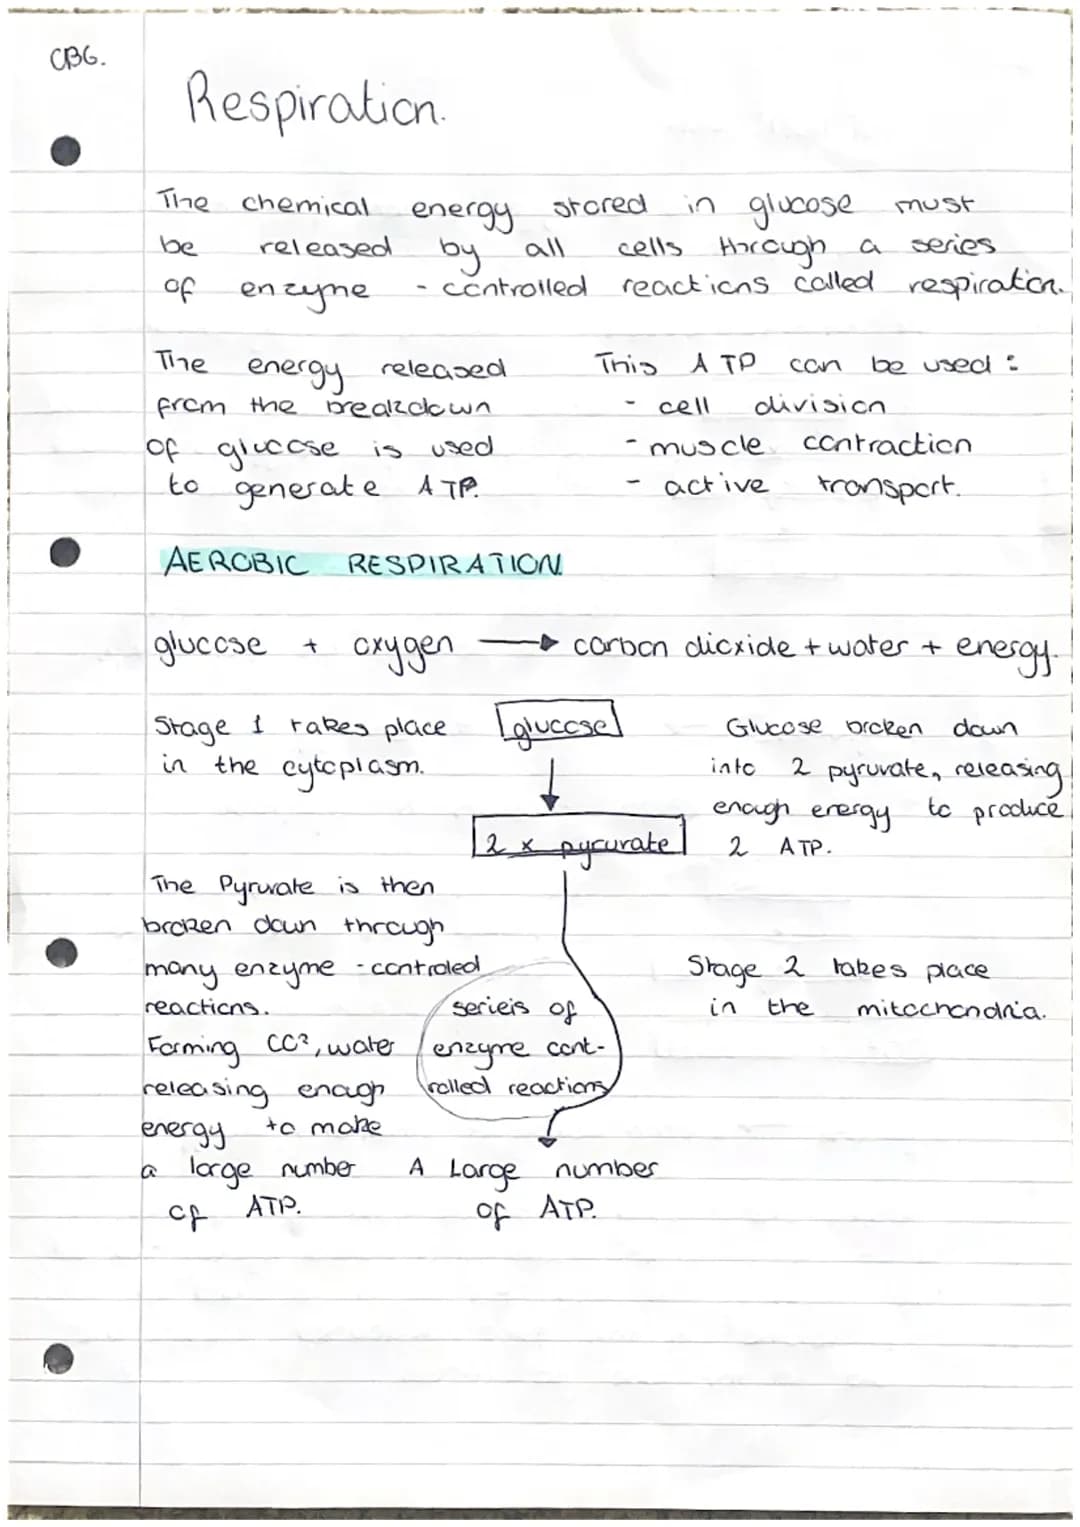 CB6.
Respiration.
The chemical energy stored in glucose must
be released by all cells through a series
of enzyme - controlled reactions called respiration.
The energy released
from the breakdown
of glucose is used
to generate ATP.
This ATP can be used :
- cell division
- muscle contraction
- active transport.
AEROBIC RESPIRATION
glucose + oxygen → carbon dioxide + water + energy.
Stage 1 takes place
in the cytoplasm.
glucose
Glucose broken down
into 2 pyruvate, releasing
enough energy to produce
2 ATP.
2 x pyruvate
The Pyruvate is then
broken down through
many enzyme - controled
reactions.
Forming CO², water
releasing enough
energy to make
a large number
of ATP.
serieis of
enzyme cont-
rolled reactions
Stage 2 takes place
in the mitochondria.
A Large number
of ATP.